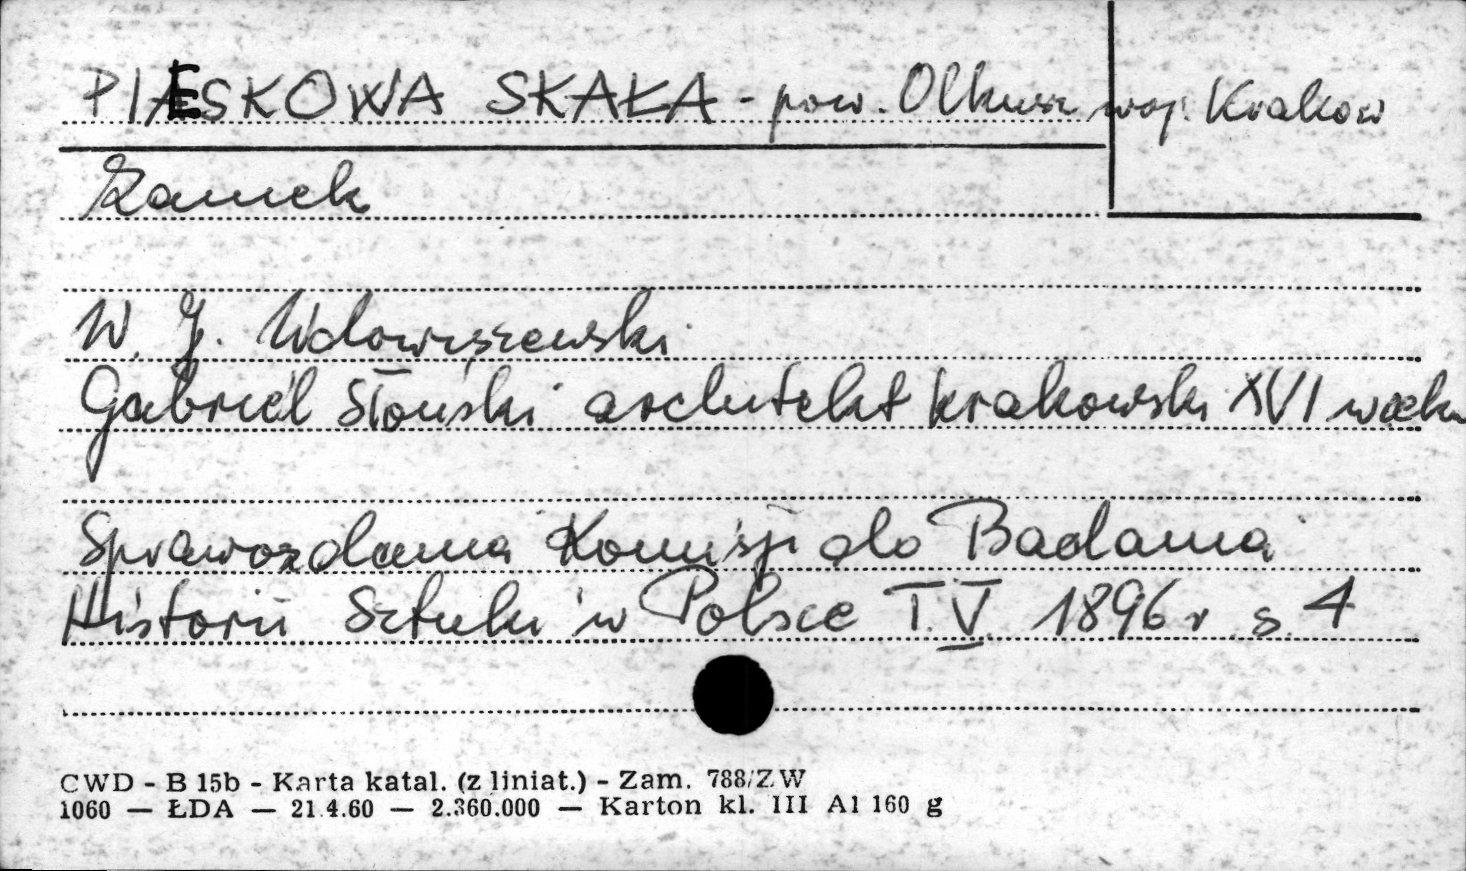 PIESKOWA SKAŁA - pow. Olkusz woj. Krakow
Zamek
W. J. Wdowiszewski
Gabriel Słoński architekt krakowski XVI wieku
Sprawozdania Komisji do Badania
Historii Sztuki w Polsce T. V. 1896 r s. 4
CWD - B 15b - Karta katal. (z liniat.) - Zam. 788/ZW
1060 — ŁDA — 21.4.60 — 2.360.000 — Karton kl. III A1 160 g